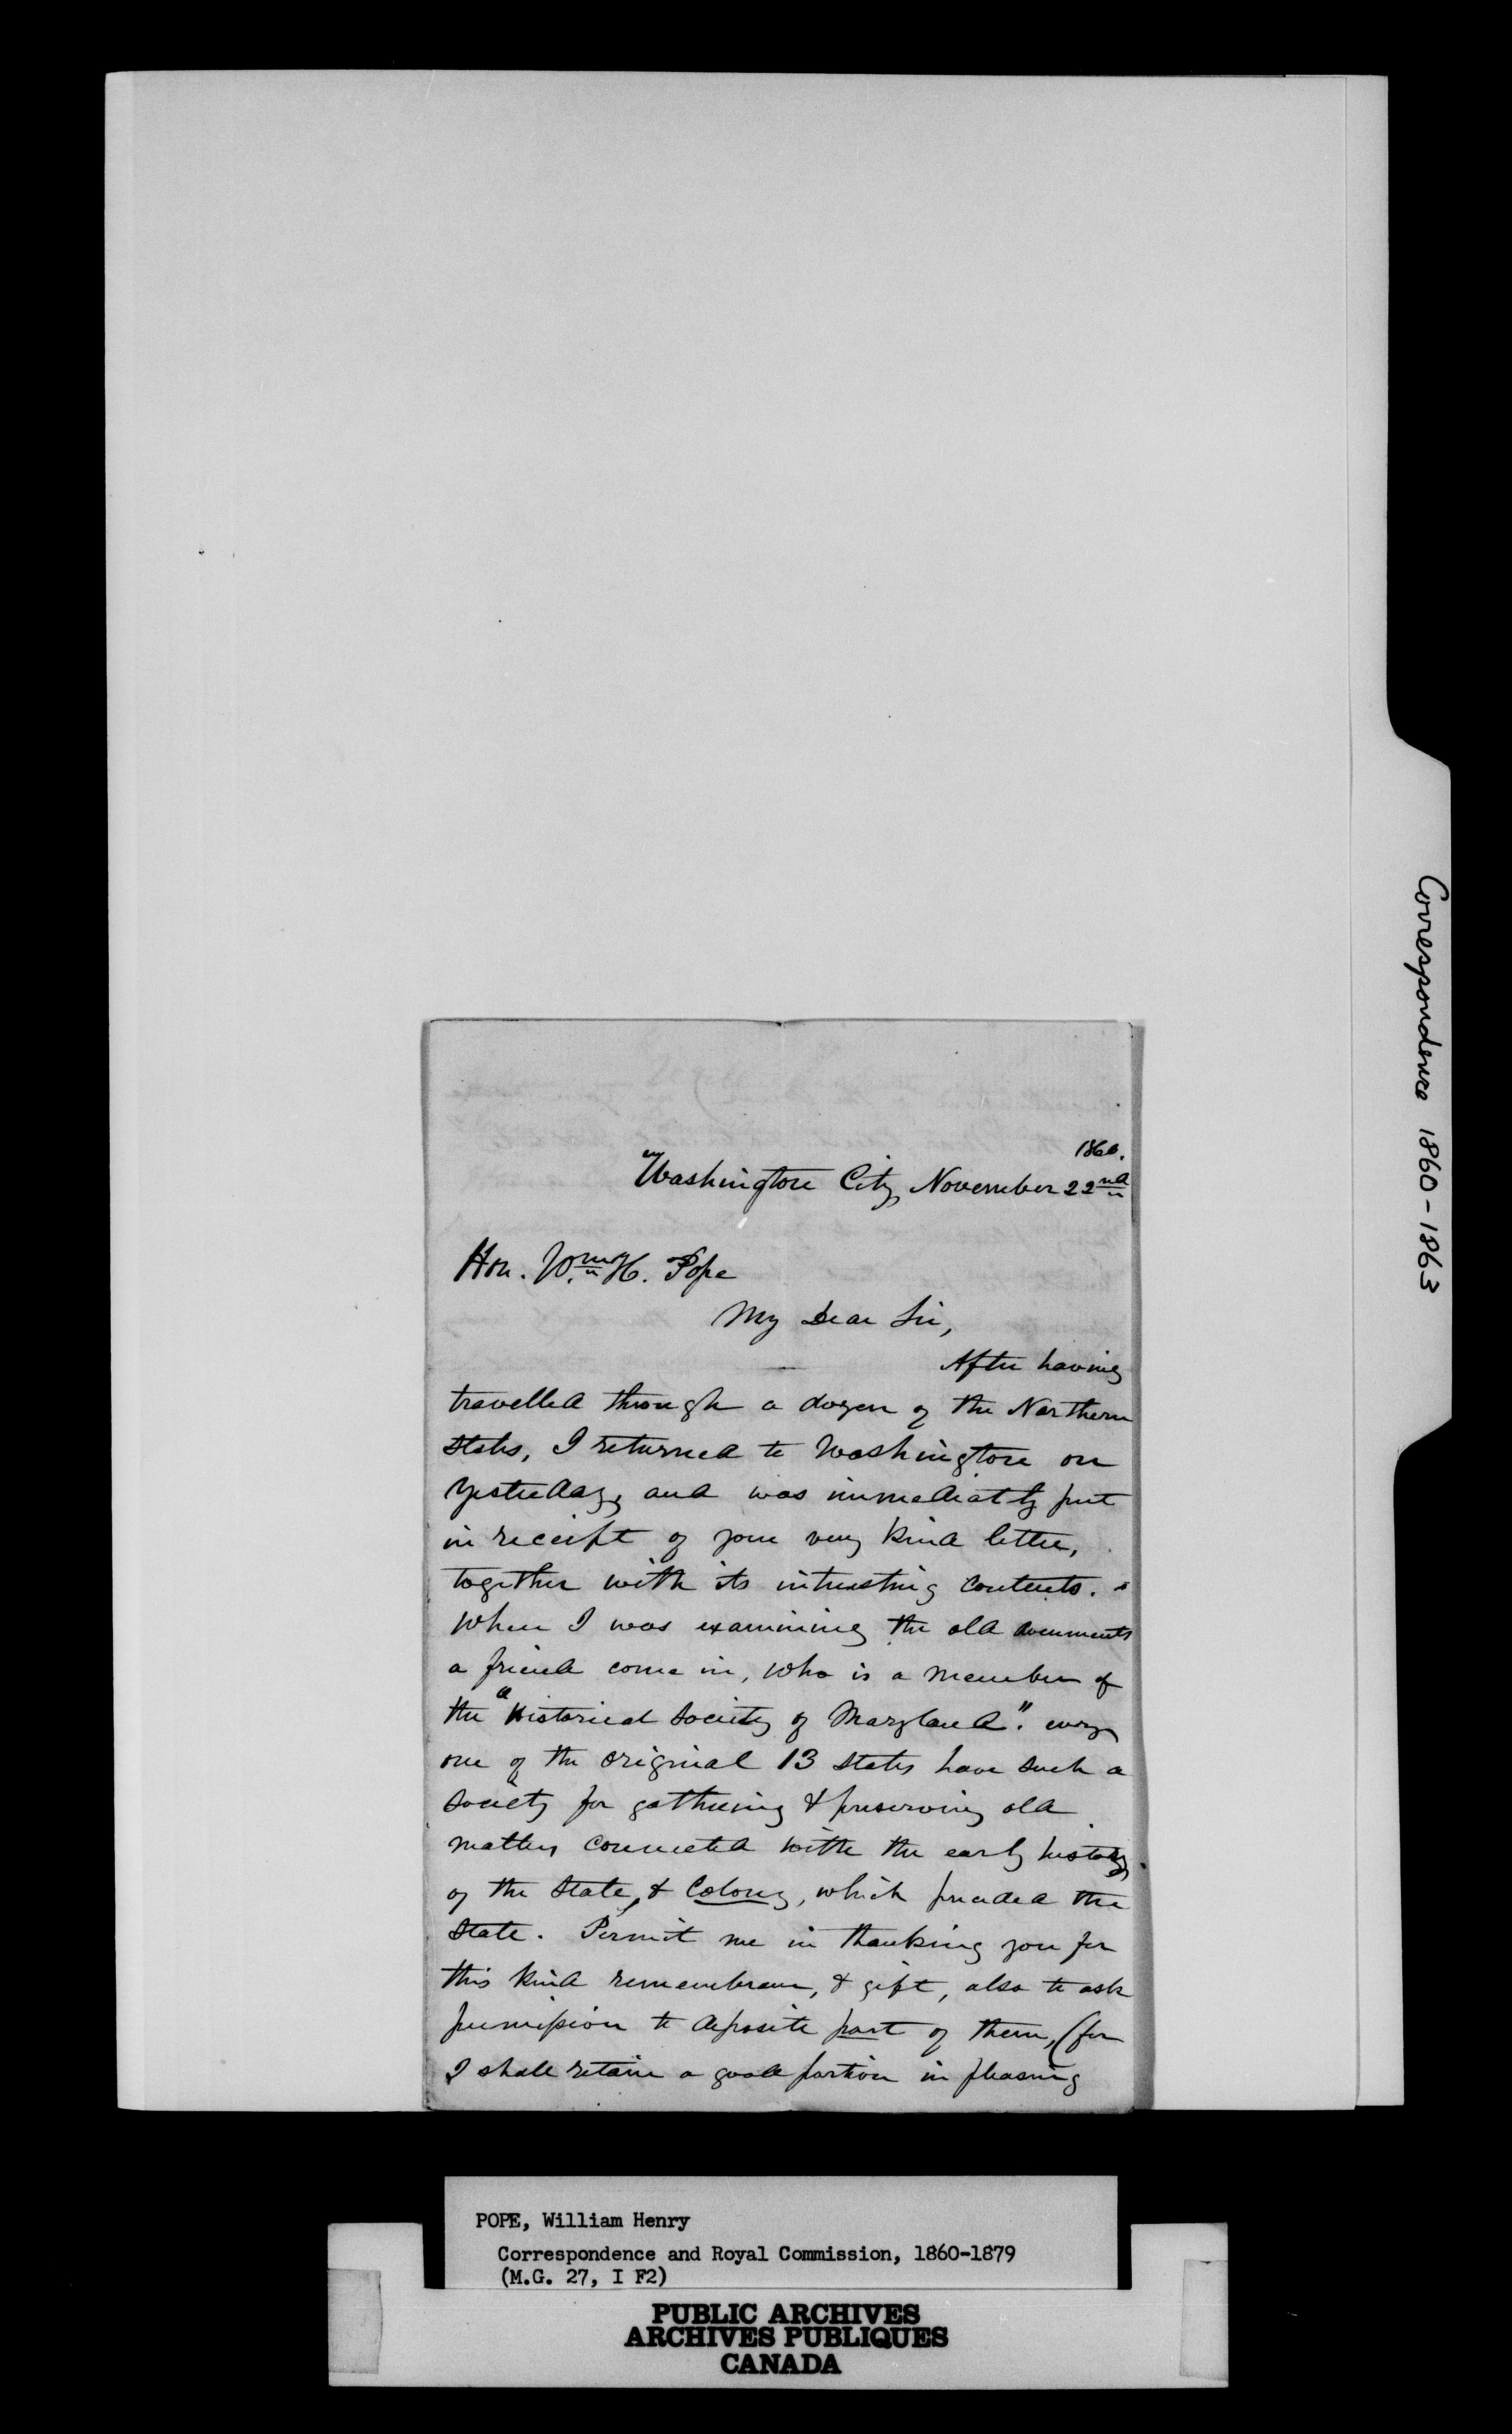 1860.
Washington City, November 22nd
Hon. Wm. H. Pope
My Dear Sir,
After having
travelled through a dozen of the Northern
States, I returned to Washington on
yesterday, and was immediatly put
in receipt of your very kind letter,
together with its intresting contents.
When I was examining the old documents
a friend come in, who is a member of
the "Historical Society of Maryland". every
one of the original 13 States have such a
Society for gathering & preserving old
matters connected with the early history
of the State, & Colony, which preceded the
State. Permit me in thanking you for
this kind remembrance, & gift, also to ask
permission to deposite part of them, (for
I shall retain a good portion in pleasing
Correspondence 1860-1863
POPE, William Henry
Correspondence and Royal Commission, 1860-1879
(M.G. 27, I F2)
PUBLIC ARCHIVES
ARCHIVES PUBLIQUES
CANADA